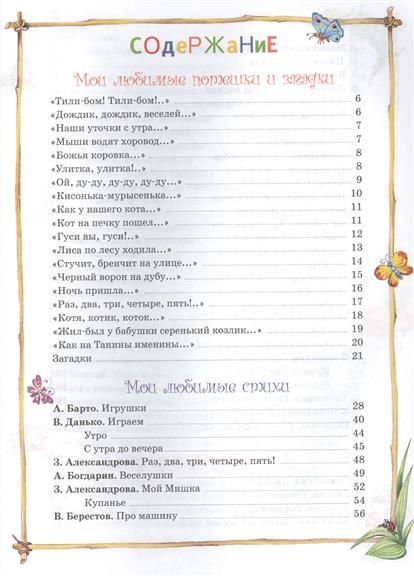 СОдеРЖаНиЕ
Мои любимые потешки и загадки
«Тили-бом! Тили-бом!..» 6
«Дождик, дождик, веселей...» 6
«Наши уточки с утра...» 7
«Мыши водят хоровод...» 7
«Божья коровка...» 8
«Улитка, улитка!..» 8
«Ой, ду-ду, ду-ду, ду-ду...» 9
«Кисонька-мурысенька...» 10
«Как у нашего кота...» 11
«Кот на печку пошел...» 11
«Гуси вы, гуси!..» 12
«Лиса по лесу ходила...» 13
«Стучит, бренчит на улице...» 14
«Черный ворон на дубу...» 15
«Ночь пришла...» 16
«Раз, два, три, четыре, пять!..» 17
«Котя, котик, коток...» 18
«Жил-был у бабушки серенький козлик...» 19
«Как на Танины именины...» 20
Загадки 21
Мои любимые стихи
А. Барто. Игрушки 28
В. Данько. Играем 40
Утро 44
С утра до вечера 45
З. Александрова. Раз, два, три, четыре, пять! 48
А. Богдарин. Веселушки 49
З. Александрова. Мой Мишка 52
Купанье 54
В. Берестов. Про машину 56